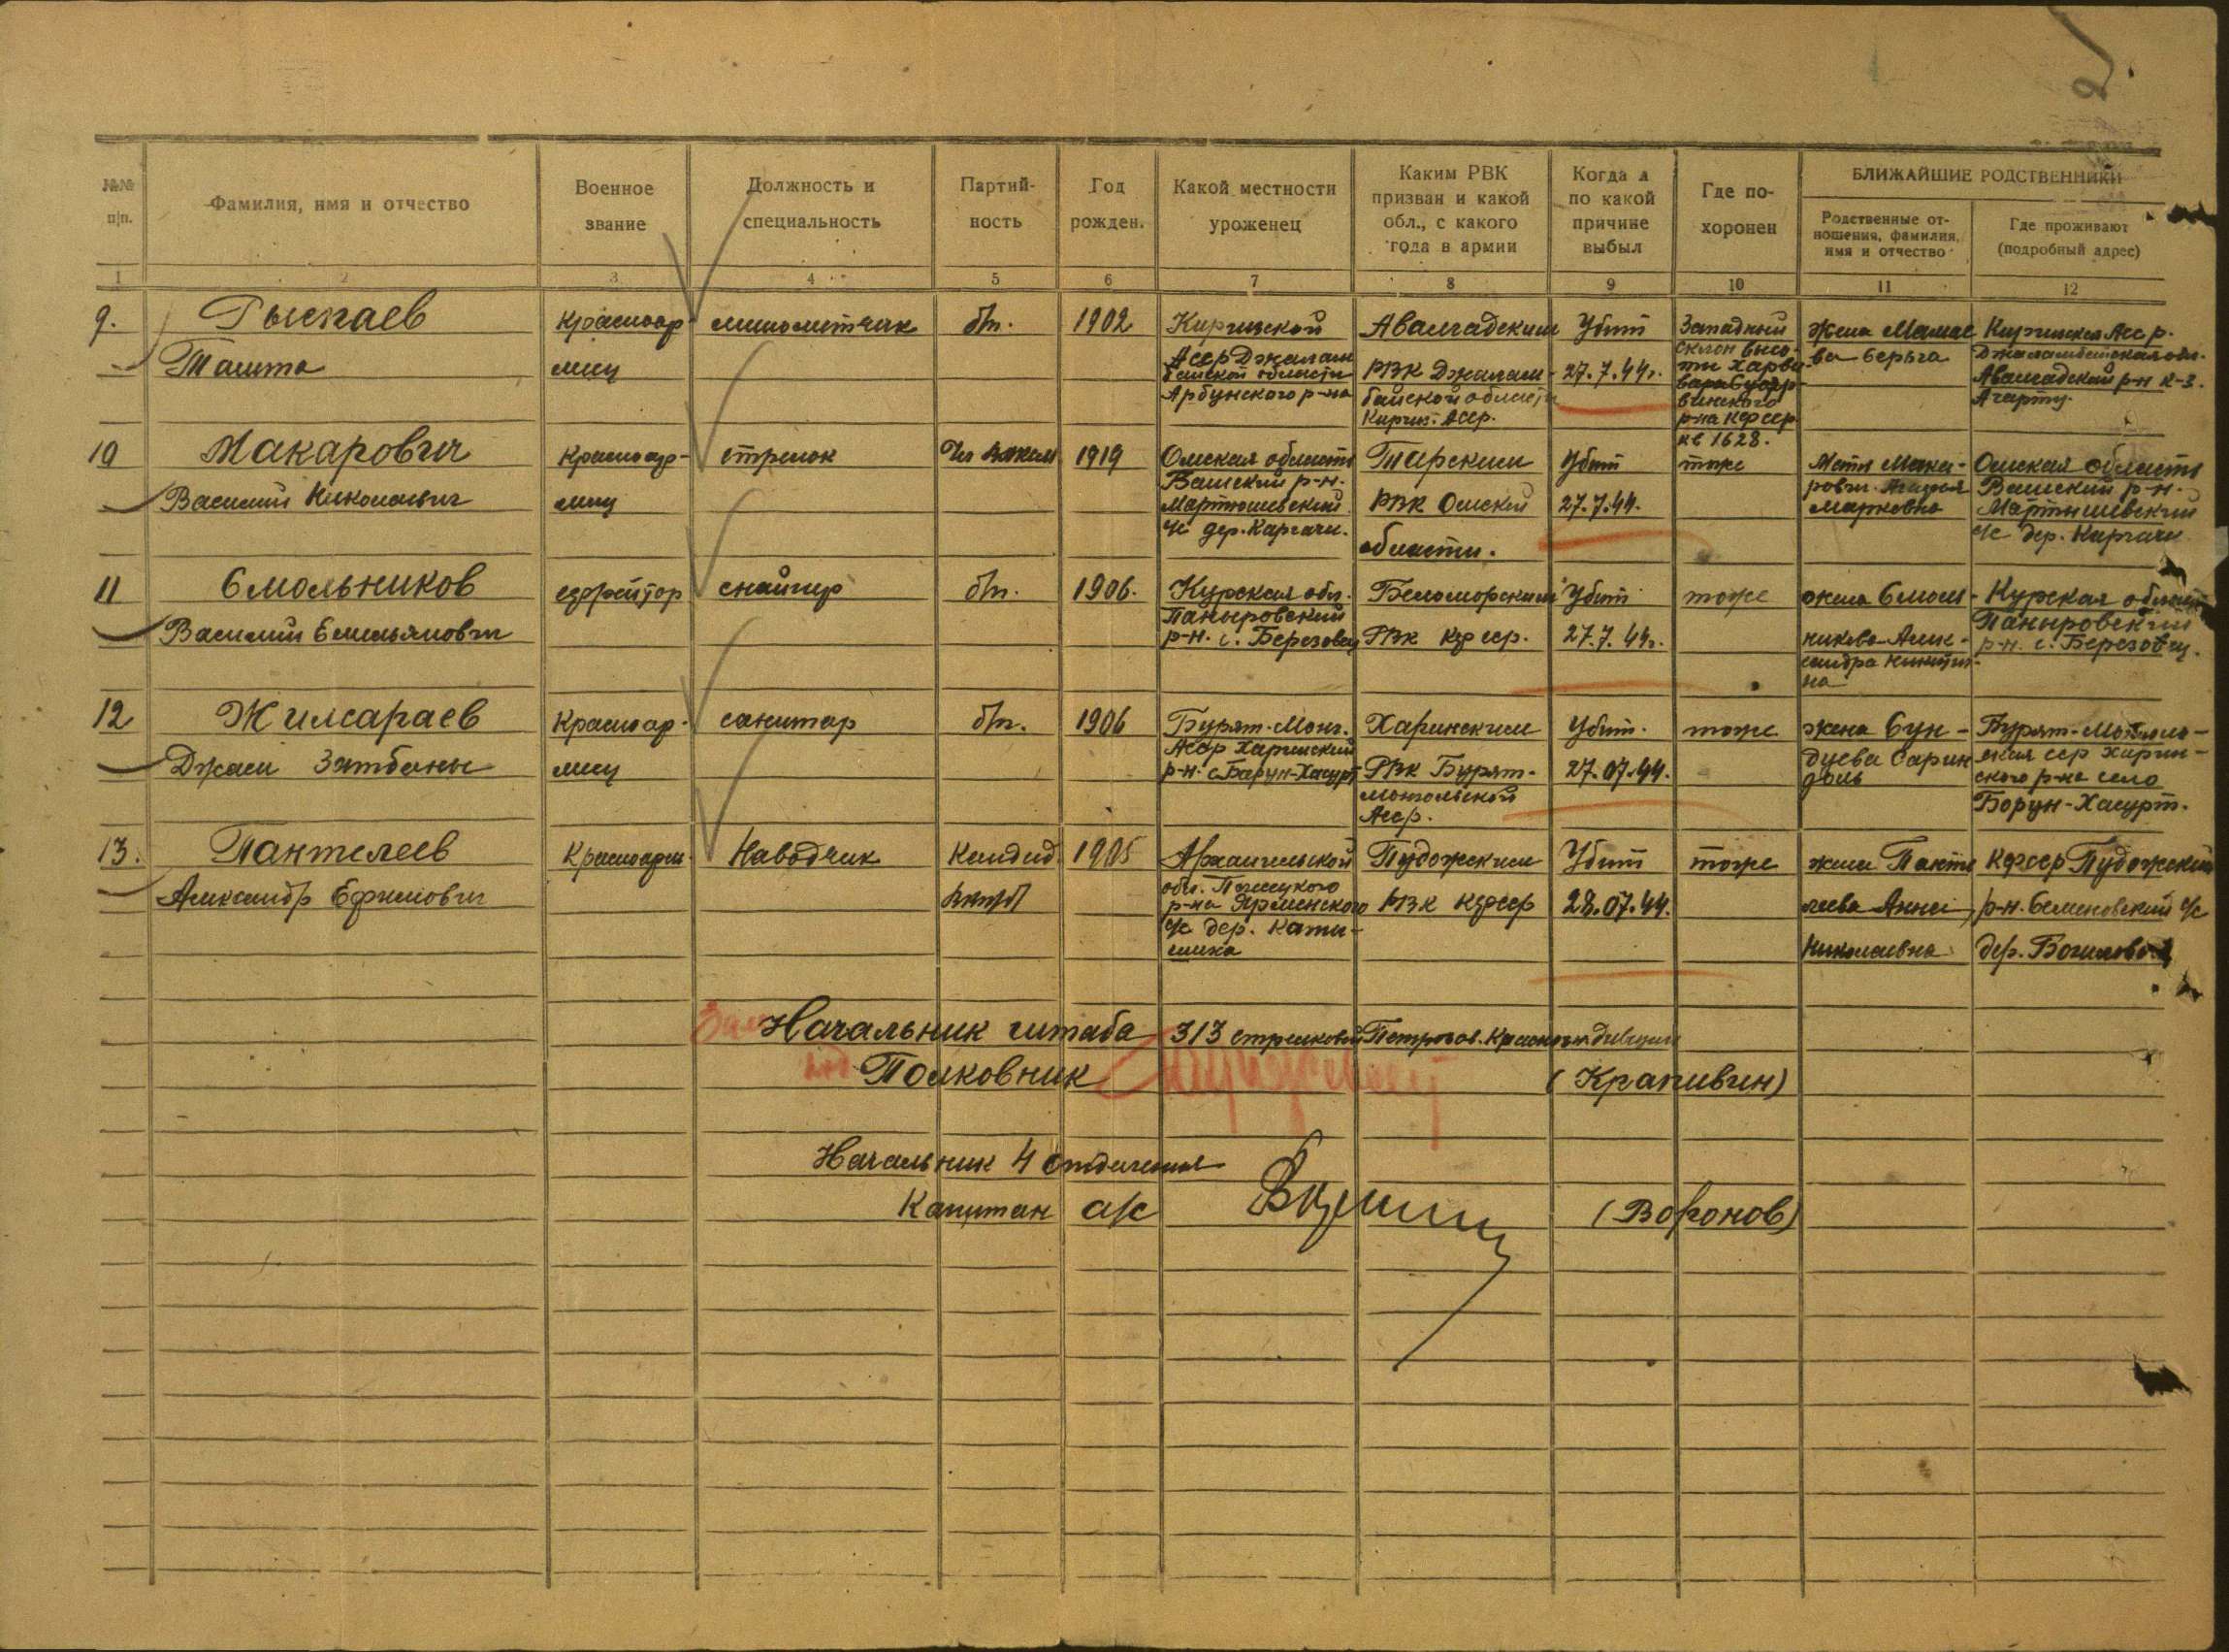 №№ п|п.
Фамилия, имя и отчество
Военное звание
Должность и специальность
Партий-ность
Год рожден.
Какой местности уроженец
Каким РВК призван и какой обл., с какого года в армии
Когда и по какой причине выбыл
Где по-хоронен
БЛИЖАЙШИЕ РОДСТВЕННИКИ
Родственные от-ношения, фамилия, имя и отчество
Где проживают (подробный адрес)
1 2 3 4 5 6 7 8 9 10 11 12
9. Рыспаев
Ташта
Красноар-
меец
минометчик
б/п.
1902
Киргизской
Асср Джалал
байской области
Арбунского р-на
Авангадским
РВК Джалал-
байской области
Киргиз. Асср.
Убит
27.7.44г.
Западный
склон высо-
ты Харви-
вара Суояр-
винского
р-на Кфсср
кв 1628.
жена Мамае
ва Берьга
Киргизская Асср.
Авангадский р-н к-з.
Агарту.
10 Макарович
Василий Николаевич
Красноар-
меец
стрелок
Чл влксм
1919
Омская область
Ваисский р-н.
Мартюшевский
с/с дер. Каргачи.
Тарским
РВК Омской
области.
Убит
27.7.44.
тоже
Мать Мака-
рович
Марковна
Омская область
Ваисский р-н.
Мартюшевский
с/с дер. Каргачи
11 Смольников
Василий Емельянович
ефрейтор
снайпер
б/п.
1906.
Курская обл.
Паныровский
р-н. с. Березовец
Беломорским
РВК Кфсср.
Убит
27.7.44г.
тоже
жена Смоль-
никова Алек-
сандра Никити-
на
Курская область
Паныровский
р-н. с. Березовец.
12 Жимсараев
Джам Затбаны
Красноар-
меец
санитар
б/п.
1906
Бурят-Монг.
Асср Харинский
р-н. с Барун-Хасурт
Харинским
РВК Бурят-
монгольской
Асср.
Убит.
27.07.44.
тоже
жена Сун-
дуева Сарин
доль
Бурят-Монголь-
ская сср Харин-
ского р-на село
Борун-Хасурт.
13. Пантелеев
Александр Ефимович
Красноарм.
Наводчик
Кандид
ВКП/б/
1905
Архангельской
обл.
р-на
с/с дер.
Пудожским
РВК Кфсср
Убит
28.07.44.
тоже
жена Панте
леева Анна
Николаевна
Кфсср Пудожский
р-н. Семеновский с/с
дер. Богилово
Зам Начальник штаба 313 стрелковой Петрозав. Краснозн. дивизии
под Полковник (Крапивин)
Начальник 4 отделения
Капитан а/с (Воронов)